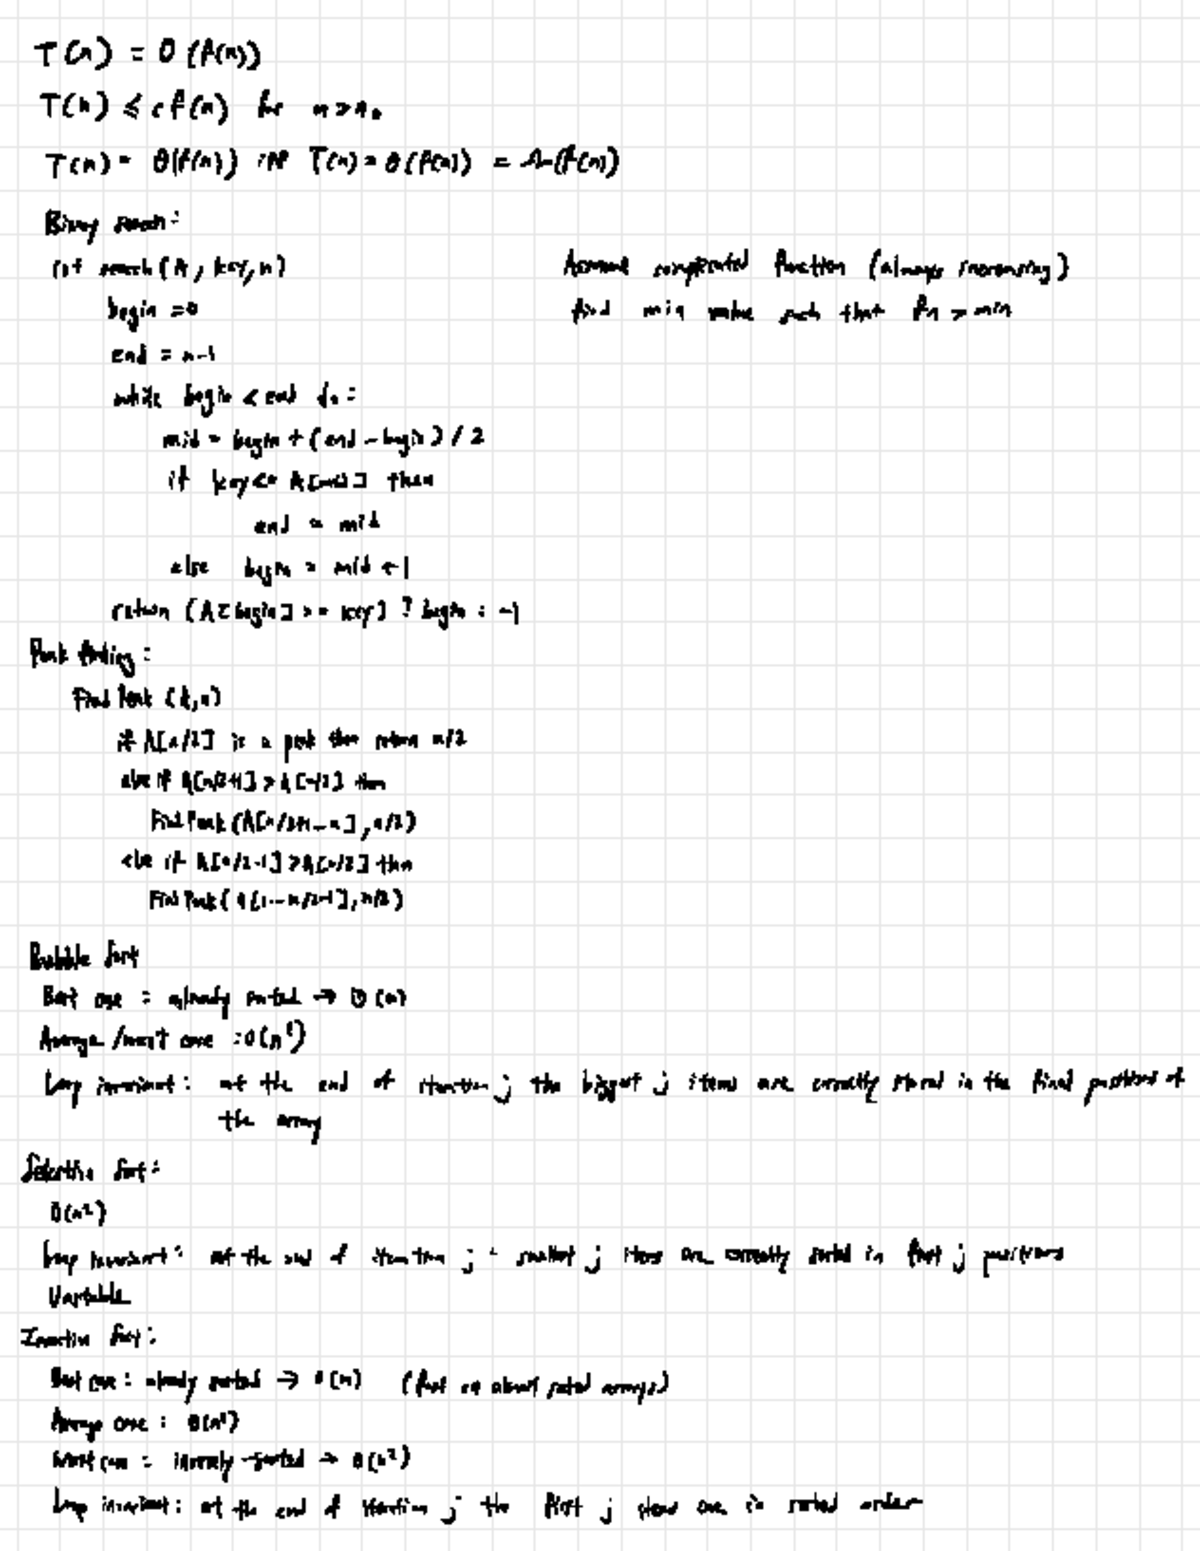 T(n) = O(f(n))
T(n) ≤ cf(n) for n > n₀
T(n) = Θ(f(n)) iff T(n) = O(f(n)) = Ω(f(n))
Binary search:
int search(A, key, n)
begin = 0
end = n-1
while begin < end do:
mid = begin + (end - begin) / 2
if key <= A[mid] then
end = mid
else begin = mid + 1
return (A[begin] >= key) ? begin : -1
Assume complicated function (always increasing)
find min value such that fn > min
Peak finding:
Find Peak (A, n)
if A[n/2] is a peak then return n/2
else if A[n/2+1] > A[n/2] then
Find Peak (A[n/2+1 - n], n/2)
else if A[n/2-1] > A[n/2] then
Find Peak (A[1 -- n/2-1], n/2)
Bubble Sort
Best case : already sorted → O(n)
Average / worst case : O(n²)
Loop invariant : at the end of iteration j the biggest j items are correctly sorted in the final positions of
the array
Selection Sort :
O(n²)
Loop invariant : at the end of iteration j : smallest j items are correctly sorted in first j positions
Unstable
Insertion Sort :
Best case : already sorted → O(n) (fast on almost sorted arrays)
Average case : O(n²)
Worst case : inversely-sorted → O(n²)
Loop invariant : at the end of iteration j the first j items are in sorted order